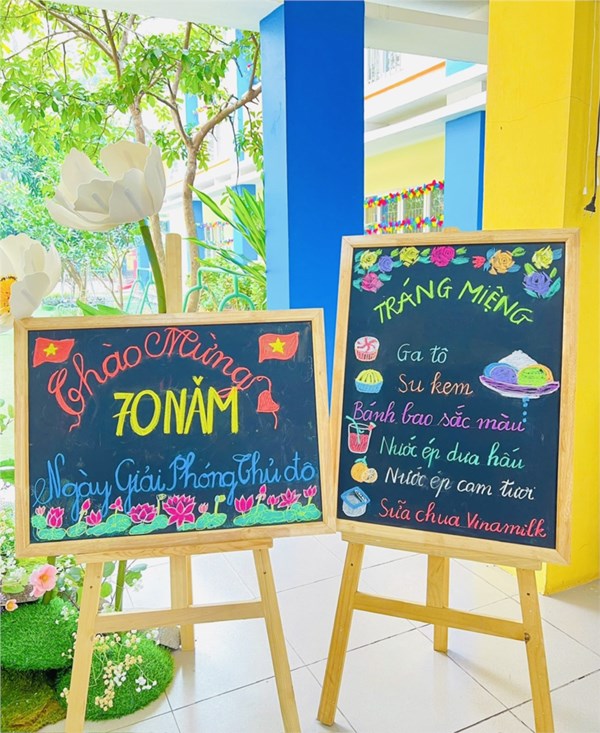 Chào Mừng
70 NĂM
Ngày Giải Phóng Thủ đô
TRÁNG MIỆNG
Ga tô
Su kem
Bánh bao sắc màu
Nước ép dưa hấu
Nước ép cam tươi
Sữa chua Vinamilk